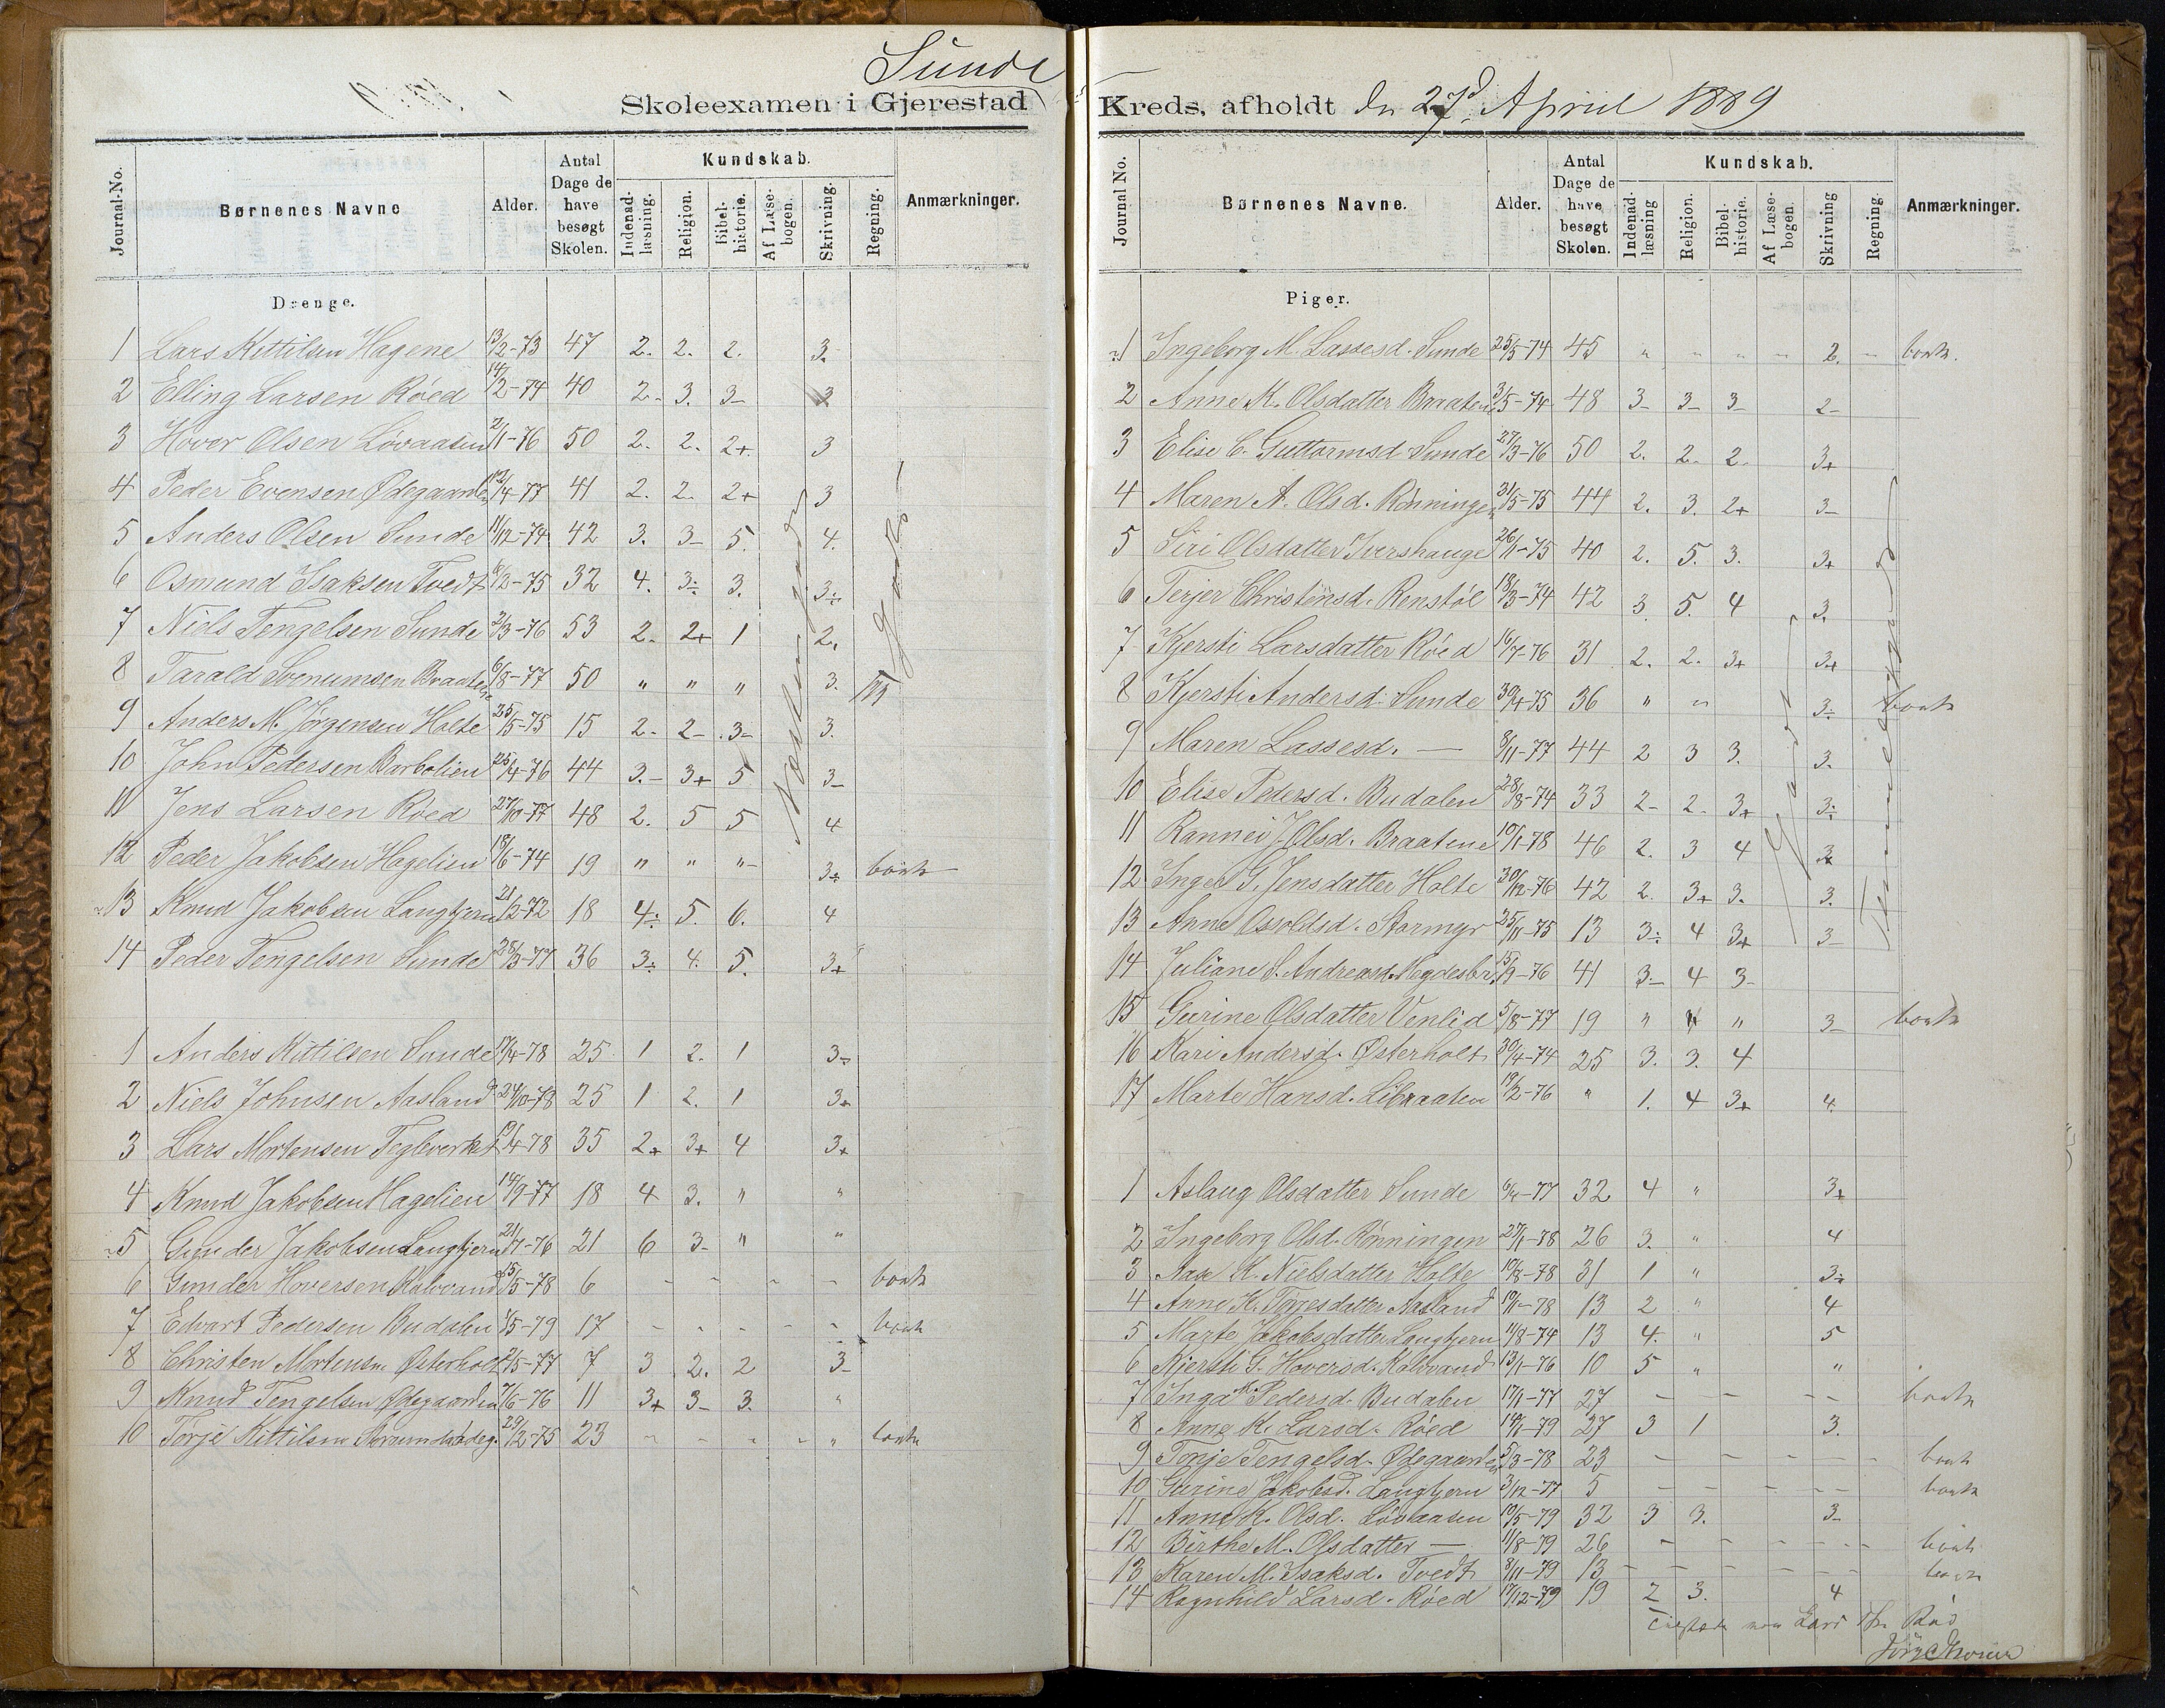 Sunde
Skoleexamen i Gjerestad
Journal-No. Børnenes Navne Alder. Antal Dage de have besøgt Skolen. Kundskab. Indenad-læsning. Religion. Bibel-historie. Af Læse-bogen. Skrivning. Regning. Anmærkninger.
Drenge.
1 Lars Kittilsen Hagene 13/2-73 47 2. 2. 2. 3.
2 Elling Larsen Røed 14/2-74 40 2- 3. 3- 3
3 Hovor Olsen Løvaasen 2/1-76 50 2. 2. 2+ 3
4 Peder Evensen Ødegaarden 12/4-77 41 2. 2. 2+ 3
5 Anders Olsen Sunde 11/12-74 42 3. 3- 5. 4.
6 Osmund Isaksen Tvedt 6/2-75 32 4. 3÷ 3. 3÷
7 Niels Tengelsen Sunde 2/3-76 53 2. 2+ 1 2.
8 Tarald Braatene 6/8-77 50 " " " 3.
9 Anders M. Jørgensen Holte 25/5-75 15 2- 2- 3- 3.
10 John Pedersen Barbolien 25/4-76 44 3.- 3+ 5 3-
11 Jens Larsen Røed 27/10-77 48 2. 5 5 4
12 Peder Jakobsen Hagelien 18/6-74 19 " " "- 3÷ borte
13 Knud Jakobsen Langtjern 21/2-72 18 4÷ 5. 6. 4
14 Peder Tengelsen Sunde 28/3-77 36 3÷ 4. 5. 3+
1 Anders Kittilsen Sunde 17/4-78 25 1 2. 1 3÷
2 Niels Johnsen Aasland 24/10-78 25 1 2. 1 3+
3 Lars Mortensen Teglverket 19/4-78 35 2+ 3+ 4 3+
4 Knud Jakobsen Hagelien 14/9-77 18 4 3. " "
5 Gunder Jakobsen Langtjern 21/7-76 21 6 3- " "
6 Gunder Hoversen Kalvvand 15/5-78 6 - - - - borte
7 Edvart Pedersen Budalen 4/5-79 17 - - - - - borte
8 Christen Mortensen Østerholt 2/5-77 7 3 2. 2 3-
9 Knud Tengelsen Ødegaarden 7/6-76 11 3+ 3- 3. "
10 Torje Kittilsen 29/2-75 23 - - - - " borte
Kreds, afholdt den 27d April 1889
Journal No. Børnenes Navne. Alder. Antal Dage de have besøgt Skolen. Kundskab. Indenad-læsning Religion. Bibel-historie. Af Læse-bogen. Skrivning Regning Anmærkninger.
Piger.
1 Ingeborg M. Lassesd. Sunde 25/5-74 45 " - - - 2. - borte.
2 Anne K. Olsdatter Braatene 3/5-74 48 3- 3- 3- 2-
3 Elise C. Guttormsd. Sunde 27/3-76 50 2. 2- 2- 3+
4 Maren A. Olsd. Rønningen 31/5-75 44 2. 3. 2+ 3-
5 Siri Olsdatter Ivershauge 26/11-75 40 2. 5. 3. 3+
6 Terjer Christensd. Renstøl 18/3-74 42 3. 5. 4 3.
7 Kjersti Larsdatter Røed 16/7-76 31 2. 2. 3+ 3+
8 Kjersti Andersd. Sunde 30/4-75 36 " " 3÷ borte
9 Maren Lassesd. — 8/11-77 44 2 3 3. 3.
10 Elise Pedersd. Budalen 28/8-74 33 2- 2- 3+ 3÷
11 Rannei J. Olsd. Braatene 10/1-78 46 2. 3 4 3+
12 Inger G. Jensdatter Holte 30/12-76 42 2. 3+ 3. 3.
13 Anne Ossoldsd. Stormyr 25/11-75 13 3÷ 4 3+ 3-
14 Juliane S. Andreasd. 15/9-76 41 3- 4 3-
15 Gurine Olsdatter Venlid 5/8-77 19 " " " 3- borte
16 Kari Andersd. Østerholt 30/4-74 25 3. 3. 4
17 Marte Hansd. Libraaten 19/2-76 " 1. 4 3+ 4.
1 Aslaug Olsdatter Sunde 6/4-77 32 4 " 3+
2 Ingeborg Olsd. Rønningen 27/1-78 26 3. " 4
3 Aase K. Nielsdatter Holte 10/8-78 31 1 " 3÷
4 Anne K. Torjesdatter Aasland 19/11-78 13 2 " 4
5 Marte Jakobsdatter Langtjern 11/8-74 13 4. " 5
6 Kjersti G. Hoversd. Kalvvand 13/1-76 10 5 " "
7 Inga K. Pedersd. Budalen 17/1-77 27 - - - - borte
8 Anne K. Larsd. Røed 14/6-79 27 3 1 3.
9 Torje Tengelsd. Ødegaarden 5/3-78 23 - - - - - borte
10 Gurine Jakobsd. Langtjern 3/12-77 5 - - - - - borte
11 Anne K. Olsd. Løvaasen 10/5-79 32 3 3. 3-
12 Birthe M. Olsdatter — 11/8-79 26 - - - - - borte
13 Karen M. Isaksd. Tvedt 8/11-79 13 - - - - - borte
14 Ragnhild Larsd. Røed 17/12-79 19 2 3. 4